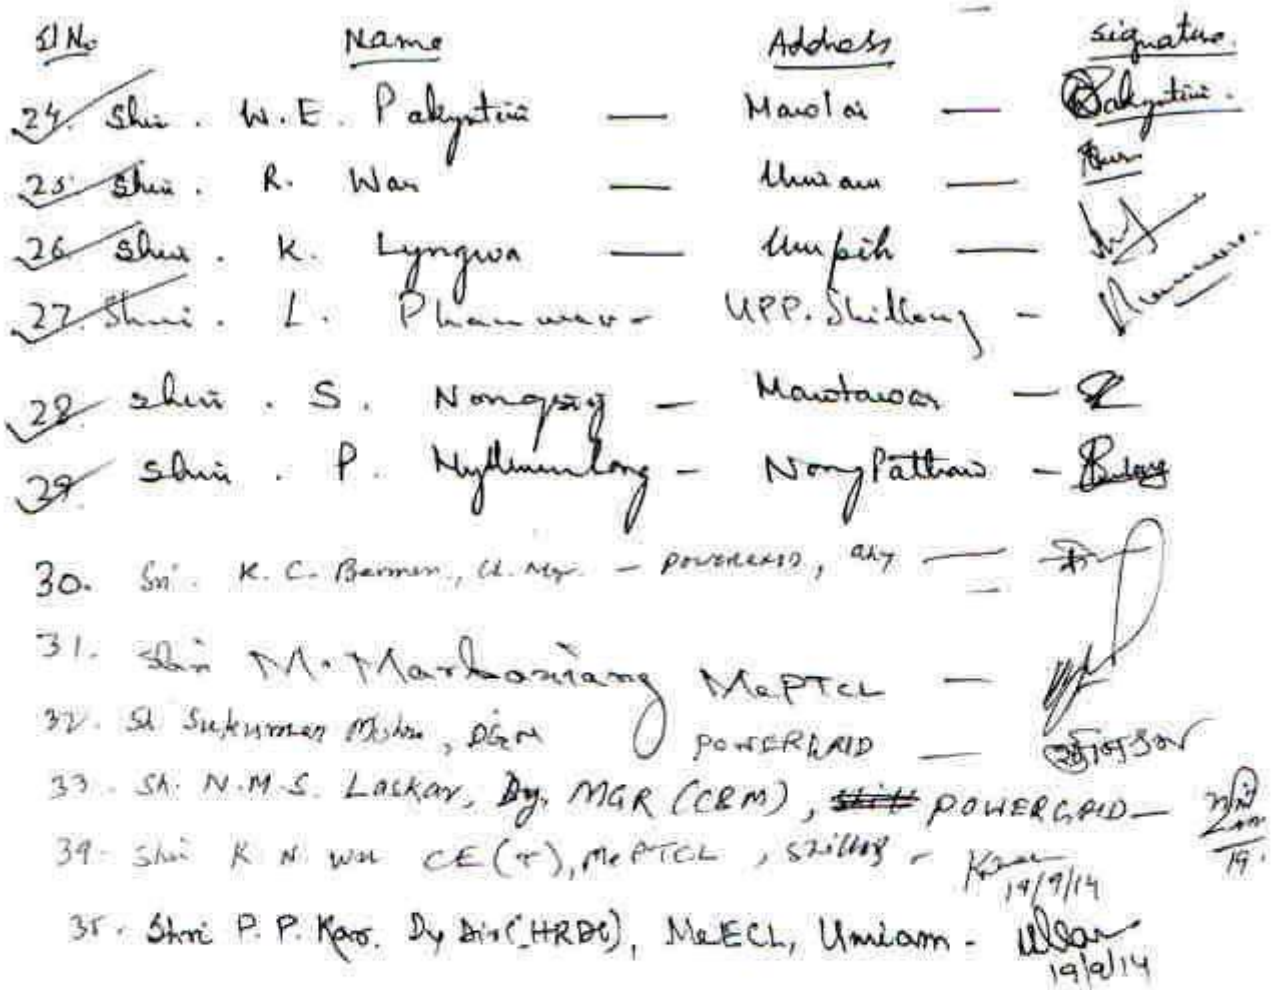 Sl No Name Address Signature.
24. Shri. W. E. Pakyntein — Mawlai — Pakyntein.
25. Shri. R. War — Umiam —
26. Shri. K. Lyngwa — Umpih —
27. Shri. L. Phanwar - UPP. Shillong -
28. Shri. S. Nongsiej — Mawtawar —
29. Shri. P. Mylliemlong - Nong Pathaw -
30. Sri. K. C. Barman, Ch. Mgr. - POWERGRID, Ghy —
31. Shri M. Marbaniang MePTCL —
32. Sh Sukumar Mishra, DGM POWERGRID —
33. Sh. N.M.S. Laskar, Dy. MGR (CBM), POWERGRID — 19.
34. Shri K N War CE (T), MePTCL, Shillong - 19/9/14
35. Shri P. P. Kar. Dy Dir (HRDC), MeECL, Umiam - 19/9/14